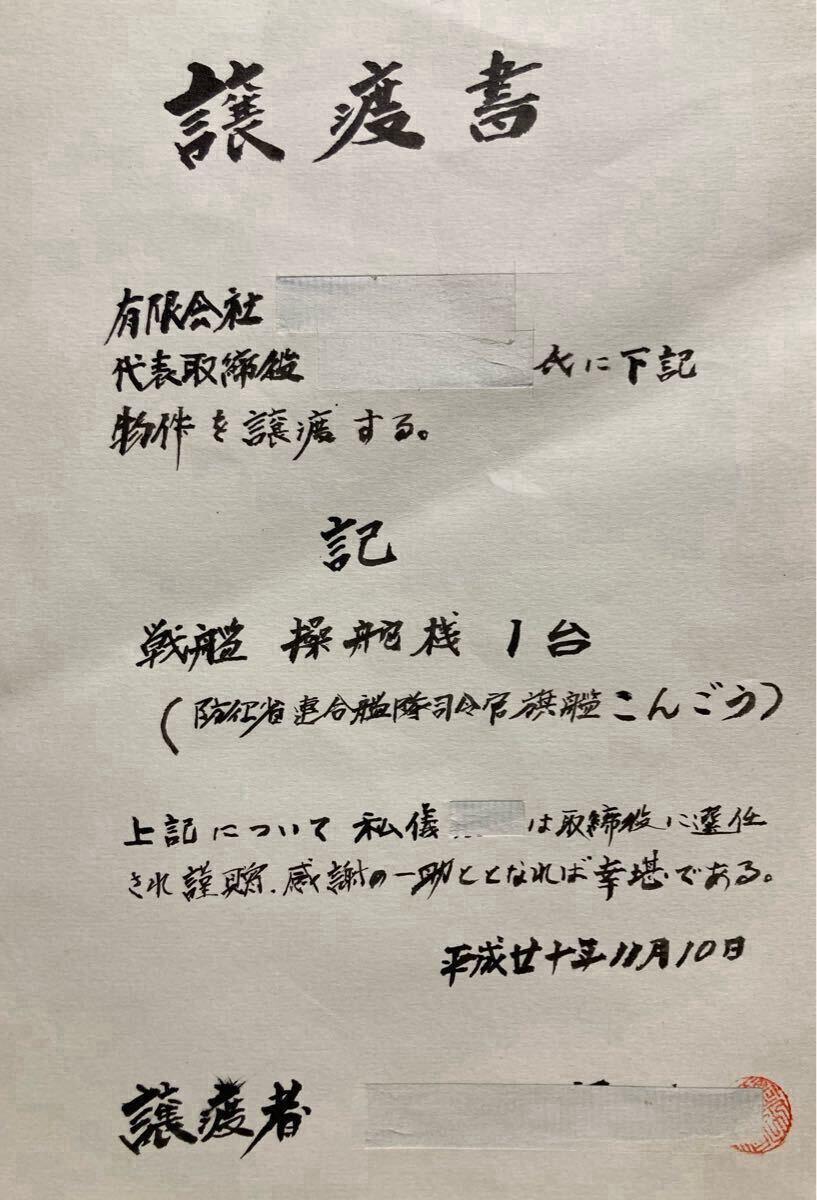 譲渡書
有限会社
代表取締役 氏に下記
物件を譲渡する。
記
戦艦 操舵桟 1台
(防衛省連合艦隊司令官旗艦こんごう)
上記について 私儀 は取締役に選任
され謹贈、感謝の一助ととなれば幸堪である。
平成廿十年11月10日
譲渡者